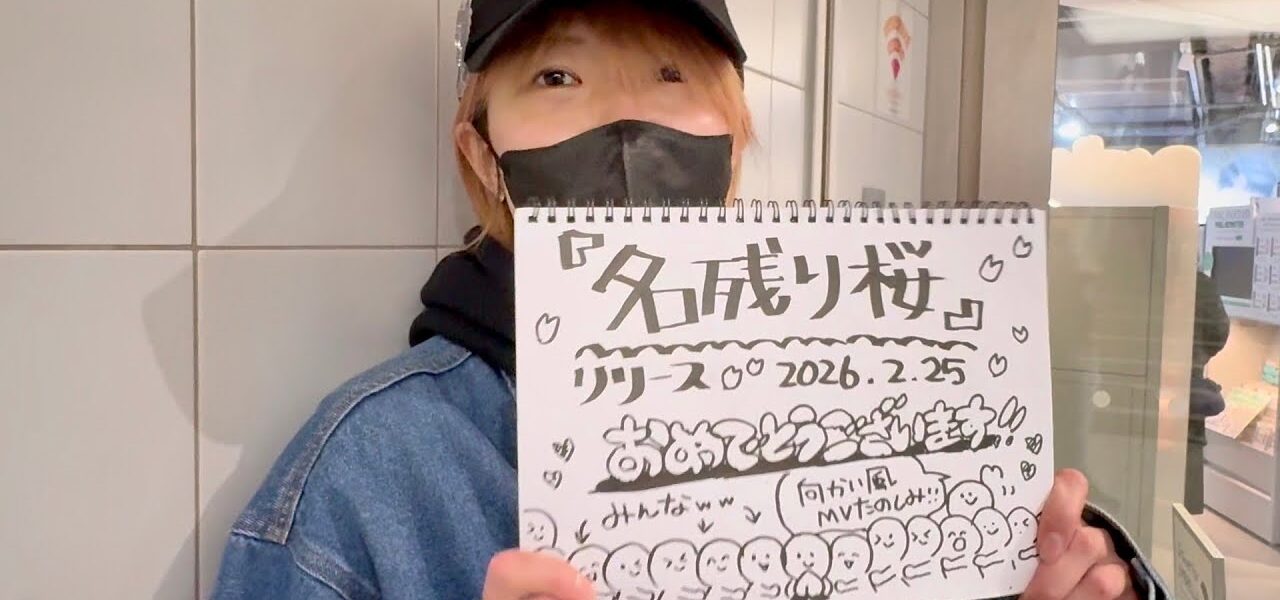 『名残り桜』
リリース 2026.2.25
おめでとうございます!!
みんなww
向かい風
MVたのしみ!!